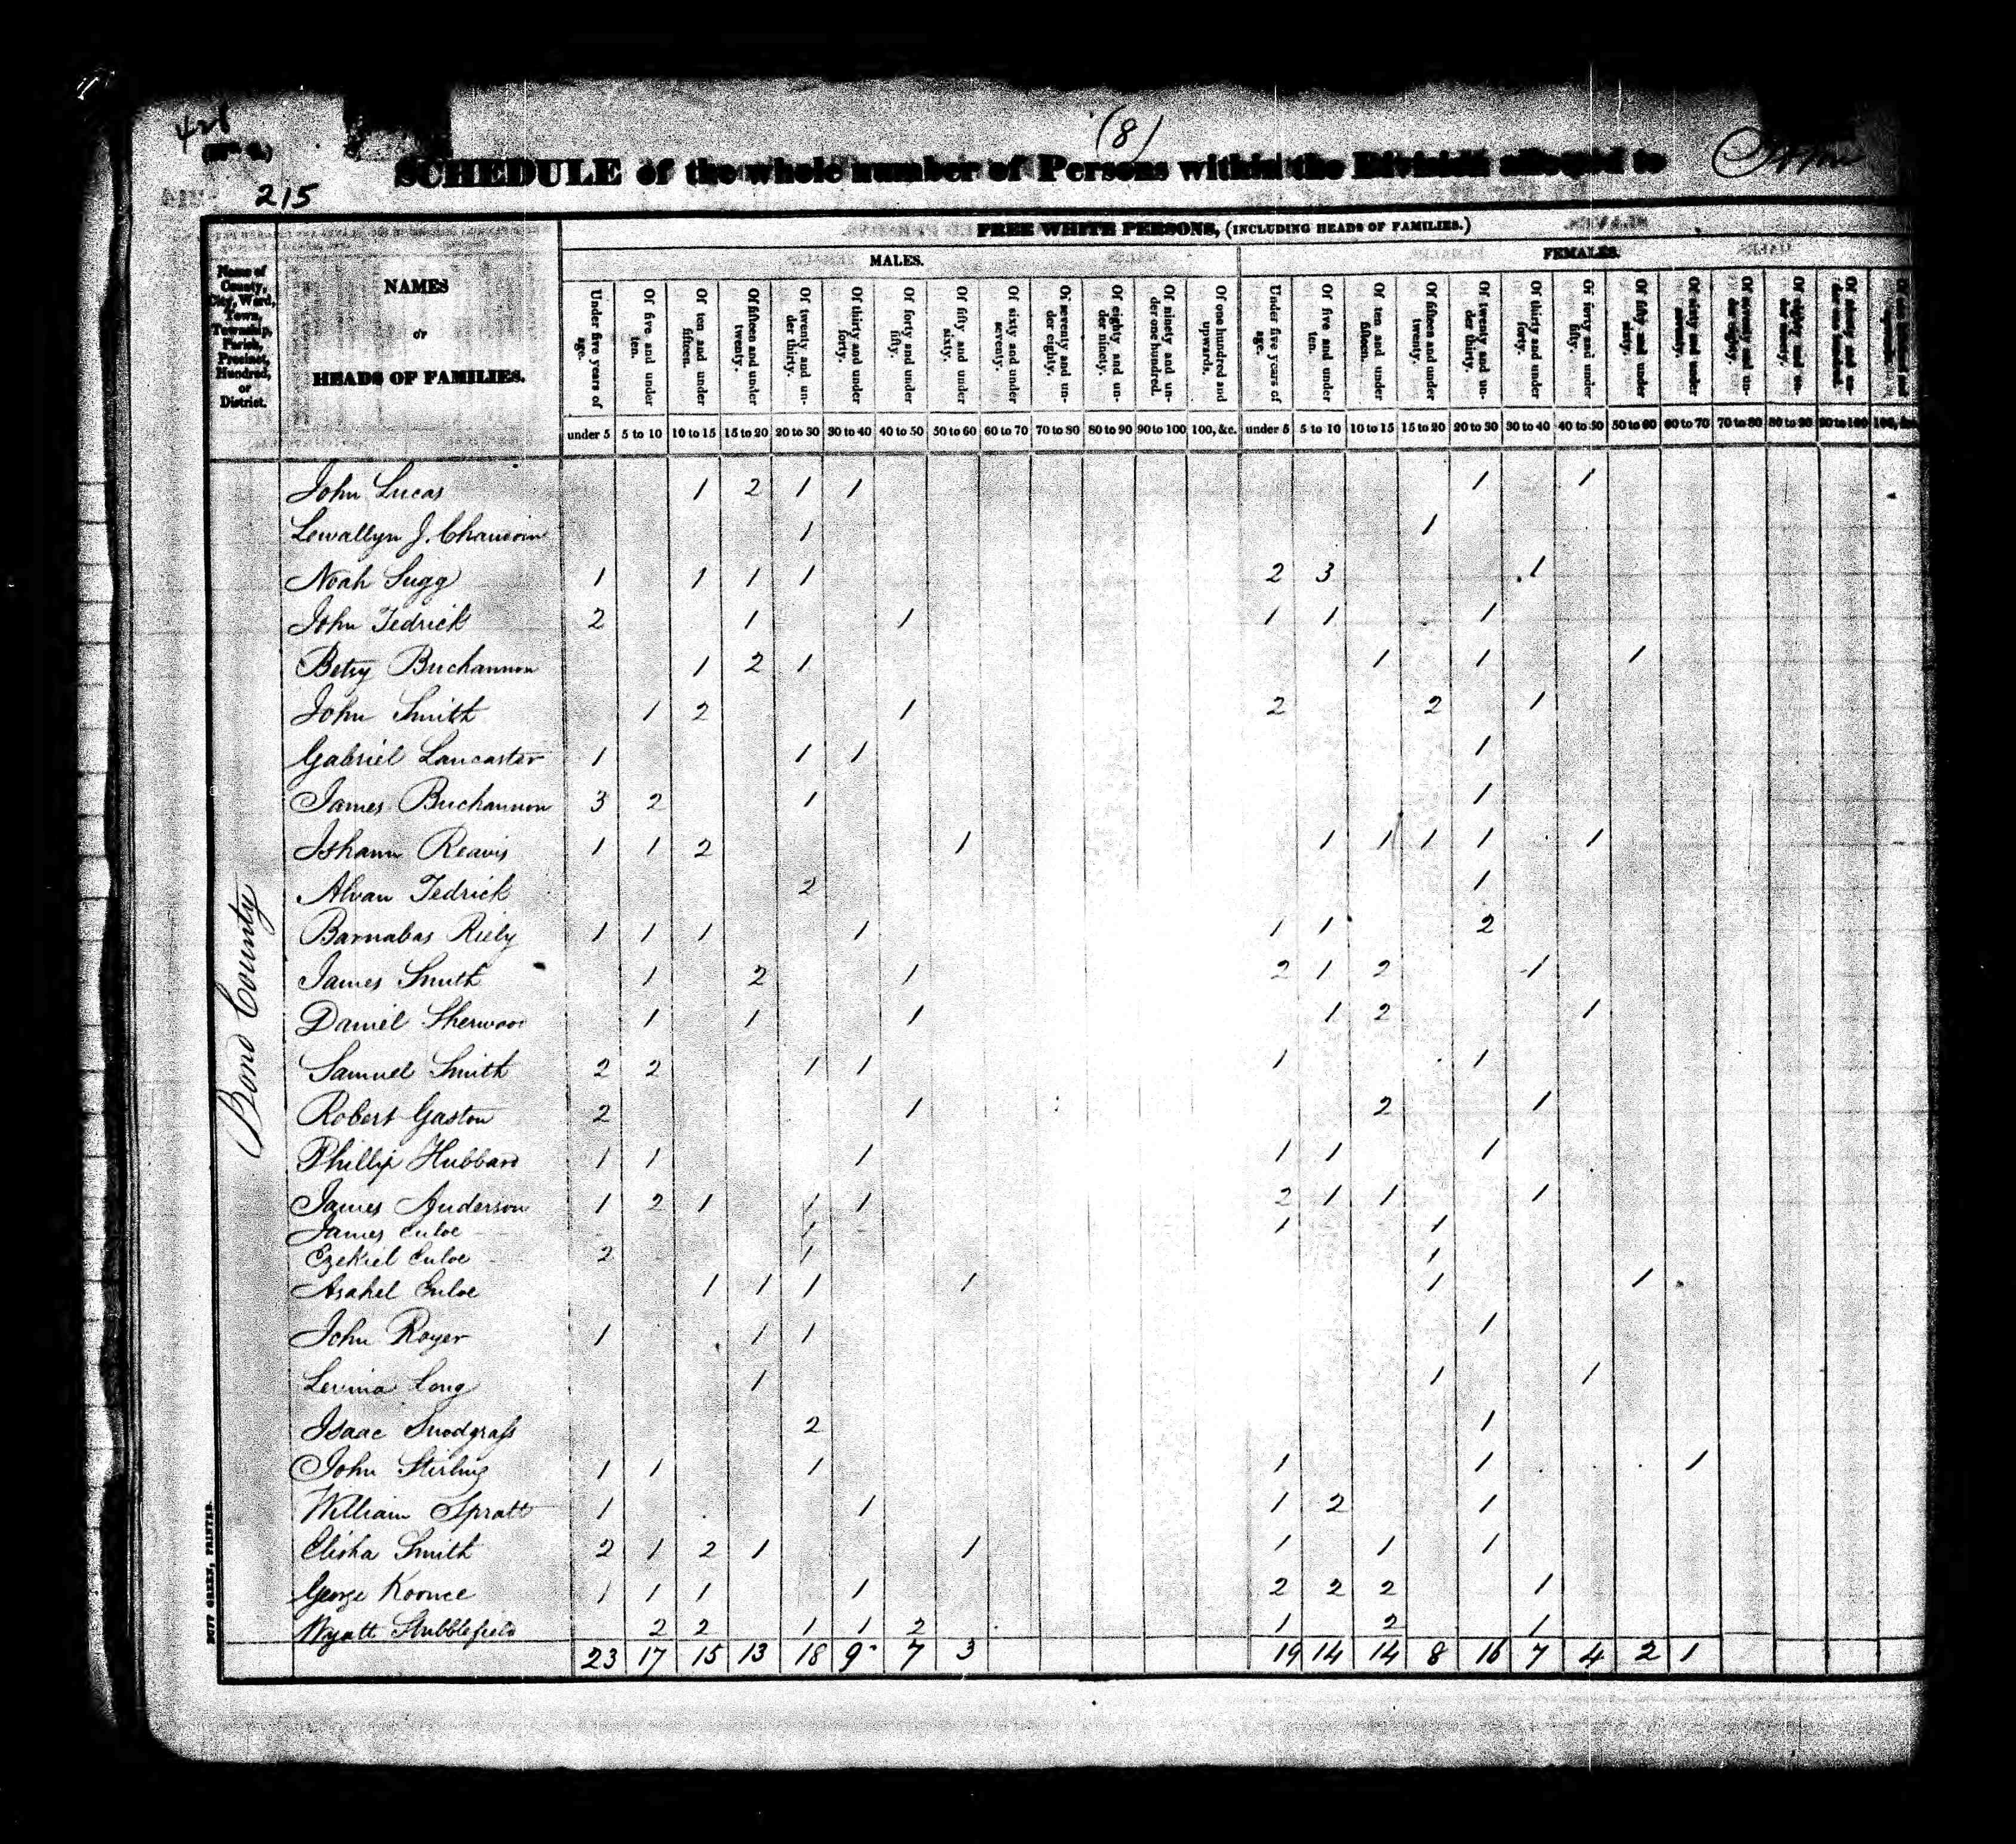 421
215
(8)
SCHEDULE of the whole number of Persons within the Division allotted to
FREE WHITE PERSONS, (INCLUDING HEADS OF FAMILIES.)
MALES. FEMALES.
Name of County, City, Ward, Town, Township, Parish, Precinct, Hundred, or District.
NAMES
OF
HEADS OF FAMILIES.
Under five years of age. Of five and under ten. Of ten and under fifteen. Of fifteen and under twenty. Of twenty and under thirty. Of thirty and under forty. Of forty and under fifty. Of fifty and under sixty. Of sixty and under seventy. Of seventy and under eighty. Of eighty and under ninety. Of ninety and under one hundred. Of one hundred and upwards. Under five years of age. Of five and under ten. Of ten and under fifteen. Of fifteen and under twenty. Of twenty and under thirty. Of thirty and under forty. Of forty and under fifty. Of fifty and under sixty. Of sixty and under seventy. Of seventy and under eighty. Of eighty and under ninety. Of ninety and under one hundred.
under 5 5 to 10 10 to 15 15 to 20 20 to 30 30 to 40 40 to 50 50 to 60 60 to 70 70 to 80 80 to 90 90 to 100 100, &c. under 5 5 to 10 10 to 15 15 to 20 20 to 30 30 to 40 40 to 50 50 to 60 60 to 70 70 to 80 80 to 90 90 to 100 100, &c.
Bond County
John Lucas 1 2 1 1 1 1
Lewallyn J. Chauvoin 1 1
Noah Sugg 1 1 1 1 2 3 1
John Tedrick 2 1 1 1 1 1
Betsy Buchannon 1 2 1 1 1 1
John Smith 1 2 1 2 2 1
Gabriel Lancaster 1 1 1 1
James Buchannon 3 2 1 1
Ishann Reavis 1 1 2 1 1 1 1 1 1
Alvan Tedrick 2 1
Barnabas Riely 1 1 1 1 1 1 2
James Smith 1 2 1 2 1 2 1
Daniel Sherwood 1 1 1 1 2 1
Samuel Smith 2 2 1 1 1 1
Robert Gaston 2 1 2 1
Phillip Hubbard 1 1 1 1 1 1
James Anderson 1 2 1 1 1 2 1 1 1
James Enloe 1 1 1
Ezekiel Enloe 2 1 1
Asahel Enloe 1 1 1 1 1 1
John Royer 1 1 1 1
Levina Long 1 1 1
Isaac Snodgrass 2 1
John Stirling 1 1 1 1 1 1
William Spratt 1 1 1 2 1
Elisha Smith 2 1 2 1 1 1 1 1
George Koonce 1 1 1 1 2 2 2 1
Wyatt Stubblefield 2 2 1 1 2 1 2 1
23 17 15 13 18 9 7 3 19 14 14 8 16 7 4 2 1
DUFF GREEN, PRINTER.